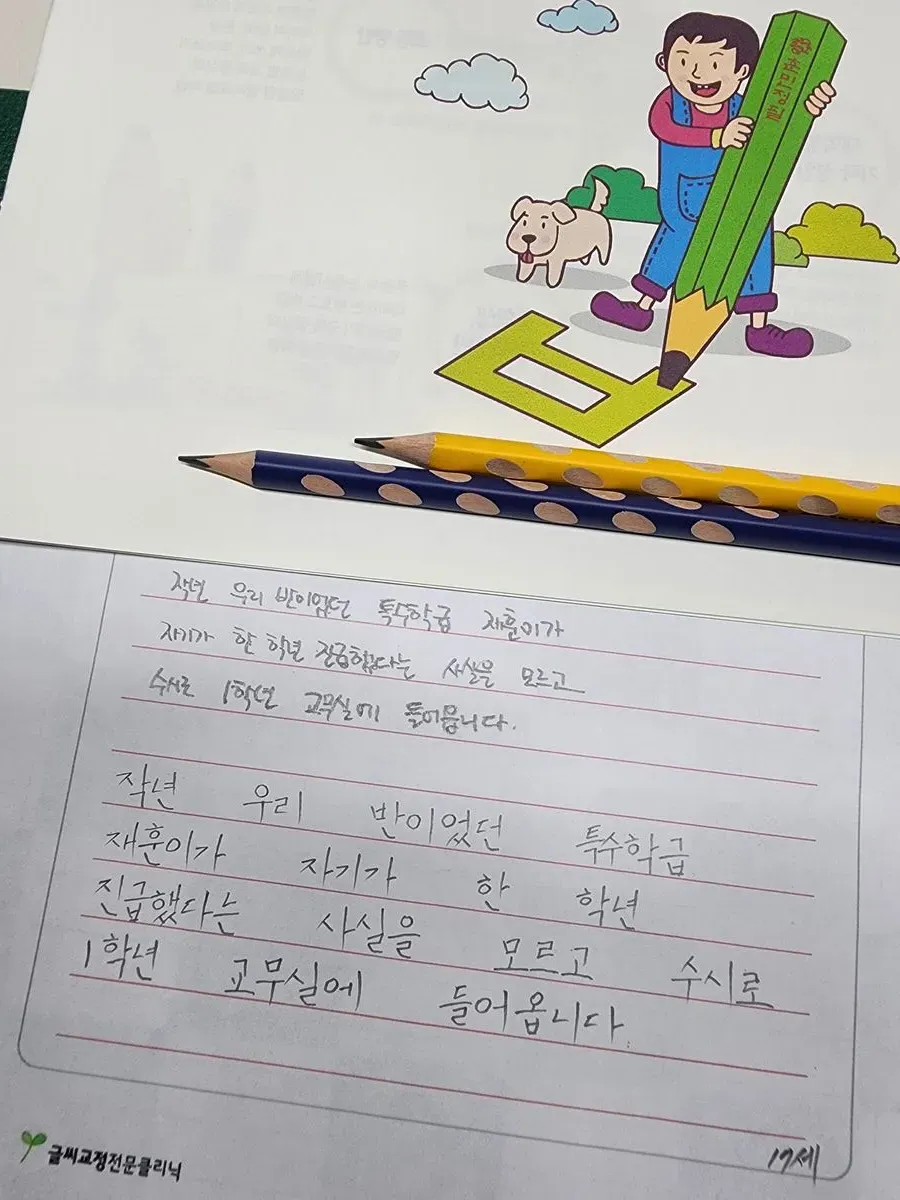 훈민정필
작년 우리 반이었던 특수학급 재훈이가
자기가 한 학년 진급했다는 사실을 모르고
수시로 1학년 교무실에 들어옵니다.
작년 우리 반이었던 특수학급
재훈이가 자기가 한 학년
진급했다는 사실을 모르고 수시로
1학년 교무실에 들어옵니다.
글씨교정전문클리닉
17세